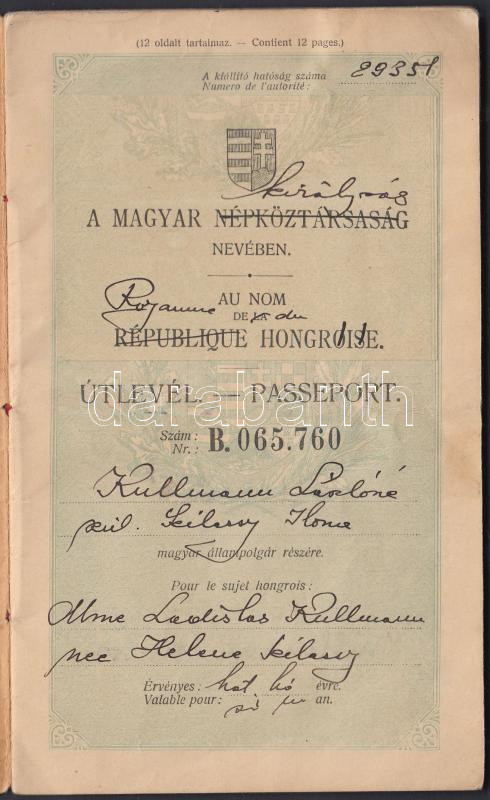 (12 oldalt tartalmaz. — Contient 12 pages.)
A kiállító hatóság száma
Numero de l'autorité: 29351
királyság
A MAGYAR NÉPKÖZTÁRSASÁG
NEVÉBEN.
AU NOM
Royaume DE LA du
RÉPUBLIQUE HONGROISE.
ÚTLEVÉL. — PASSEPORT.
darabanth
Szám:
Nr.: B. 065.760
Kullmann Lászlóné
szül. Szilassy Ilona
magyar állampolgár részére.
Pour le sujet hongrois:
Mme Ladislas Kullmann
née Helene Szilassy
Érvényes: hat hó évre.
Valable pour: an.